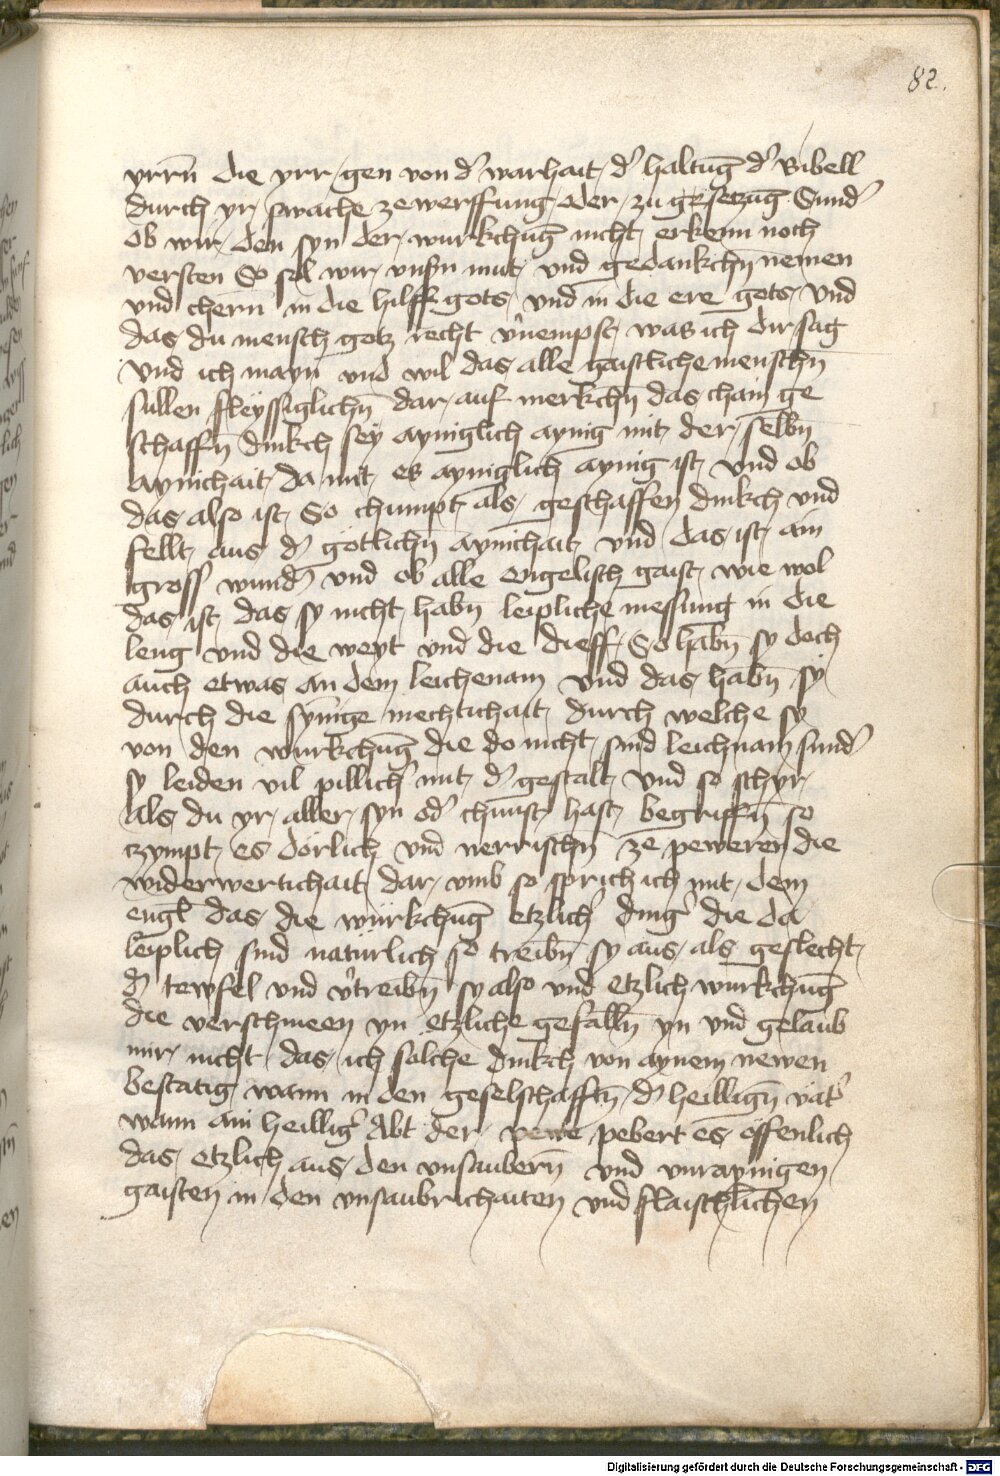 82.
yrrn̄ die yrr gen von d' warhait d' haltūg d' Bibell
durch yr swache zewerffung oder zu gesetzūg Sund'
ob wir den syn der wurkchūg nicht erkenn noch
versten So sol wir vnsn̄ mut vnd gedankchn̄ nemen
vnd chern̄ in die hilff gots vnd in die ere gots Vnd
das du mensch gotz recht v'nempst was ich dir sag
Vnd ich mayn vnd wil das alle gaistliche menschn̄
sullen fleyssiglichn̄ dar auf merkchn̄ das chain ge
schaffn̄ dinkch sey ayniglich aynig mit der selbn̄
aynichait da mit es ayniglich aynig ist vnd ob
das also ist So chumpt als geschaffen dinkch vnd
fellt aus d' götlichn̄ aynichait vnd das ist ain
gross wund' vnd ob alle engelisch gaist wie wol
das ist das sy nicht habn̄ leipliche messung in die
leng vnd die weyt vnd die dieff So habn̄ sy doch
auch etwas an dem leichenam vnd das habn̄ sy
durch die synnige mechtichait durch welche sy
von den wurkchūg die do nicht sind leichnam sund'
sy leiden vil pillich' mit d' gestalt vnd so schyr
als du yr aller syn od' chunst hast begriffn̄ so
czympt es dörlich vnd nerrischn̄ ze peweren die
widerwertichait dar vmb so sprich ich mit dem
engl das die würkchūg etzlich' ding' die da
leiplich sind natürlich so treibn̄ sy aus als geslecht
d' tewfel vnd v'treibn̄ sy also vnd etzlich wurkchūg
die verschmeen yn etzliche gefalln̄ yn vnd gelaub
mir nicht das ich solche dinkch von aynem newen
bestätig wann in den geselschafftn̄ d' heillign̄ vät'
wann ain heillig' Abt der pebert es öffenlich
das etzlich aus den vnsaubern̄ vnd vnraynigen
gaisten in den vnsaubrichaiten vnd flaischlichen
Digitalisierung gefördert durch die Deutsche Forschungsgemeinschaft - DFG